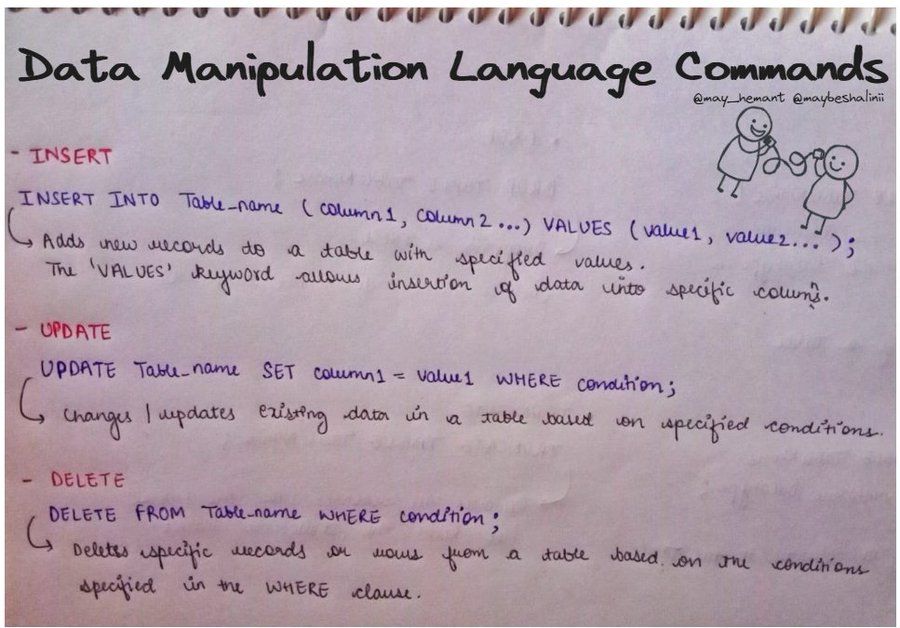 Data Manipulation Language Commands
@may_hemant @maybeshalinii
- INSERT
INSERT INTO Table_name (column1, column2 ...) VALUES (value1, value2... );
Adds new records do a table with specified values.
The 'VALUES' keyword allows insertion of data into specific columns.
- UPDATE
UPDATE Table_name SET column1 = value1 WHERE condition;
Changes / updates existing data in a table based on specified conditions.
- DELETE
DELETE FROM Table_name WHERE condition;
Deletes specific records or rows from a table based on the conditions
specified in the WHERE clause.